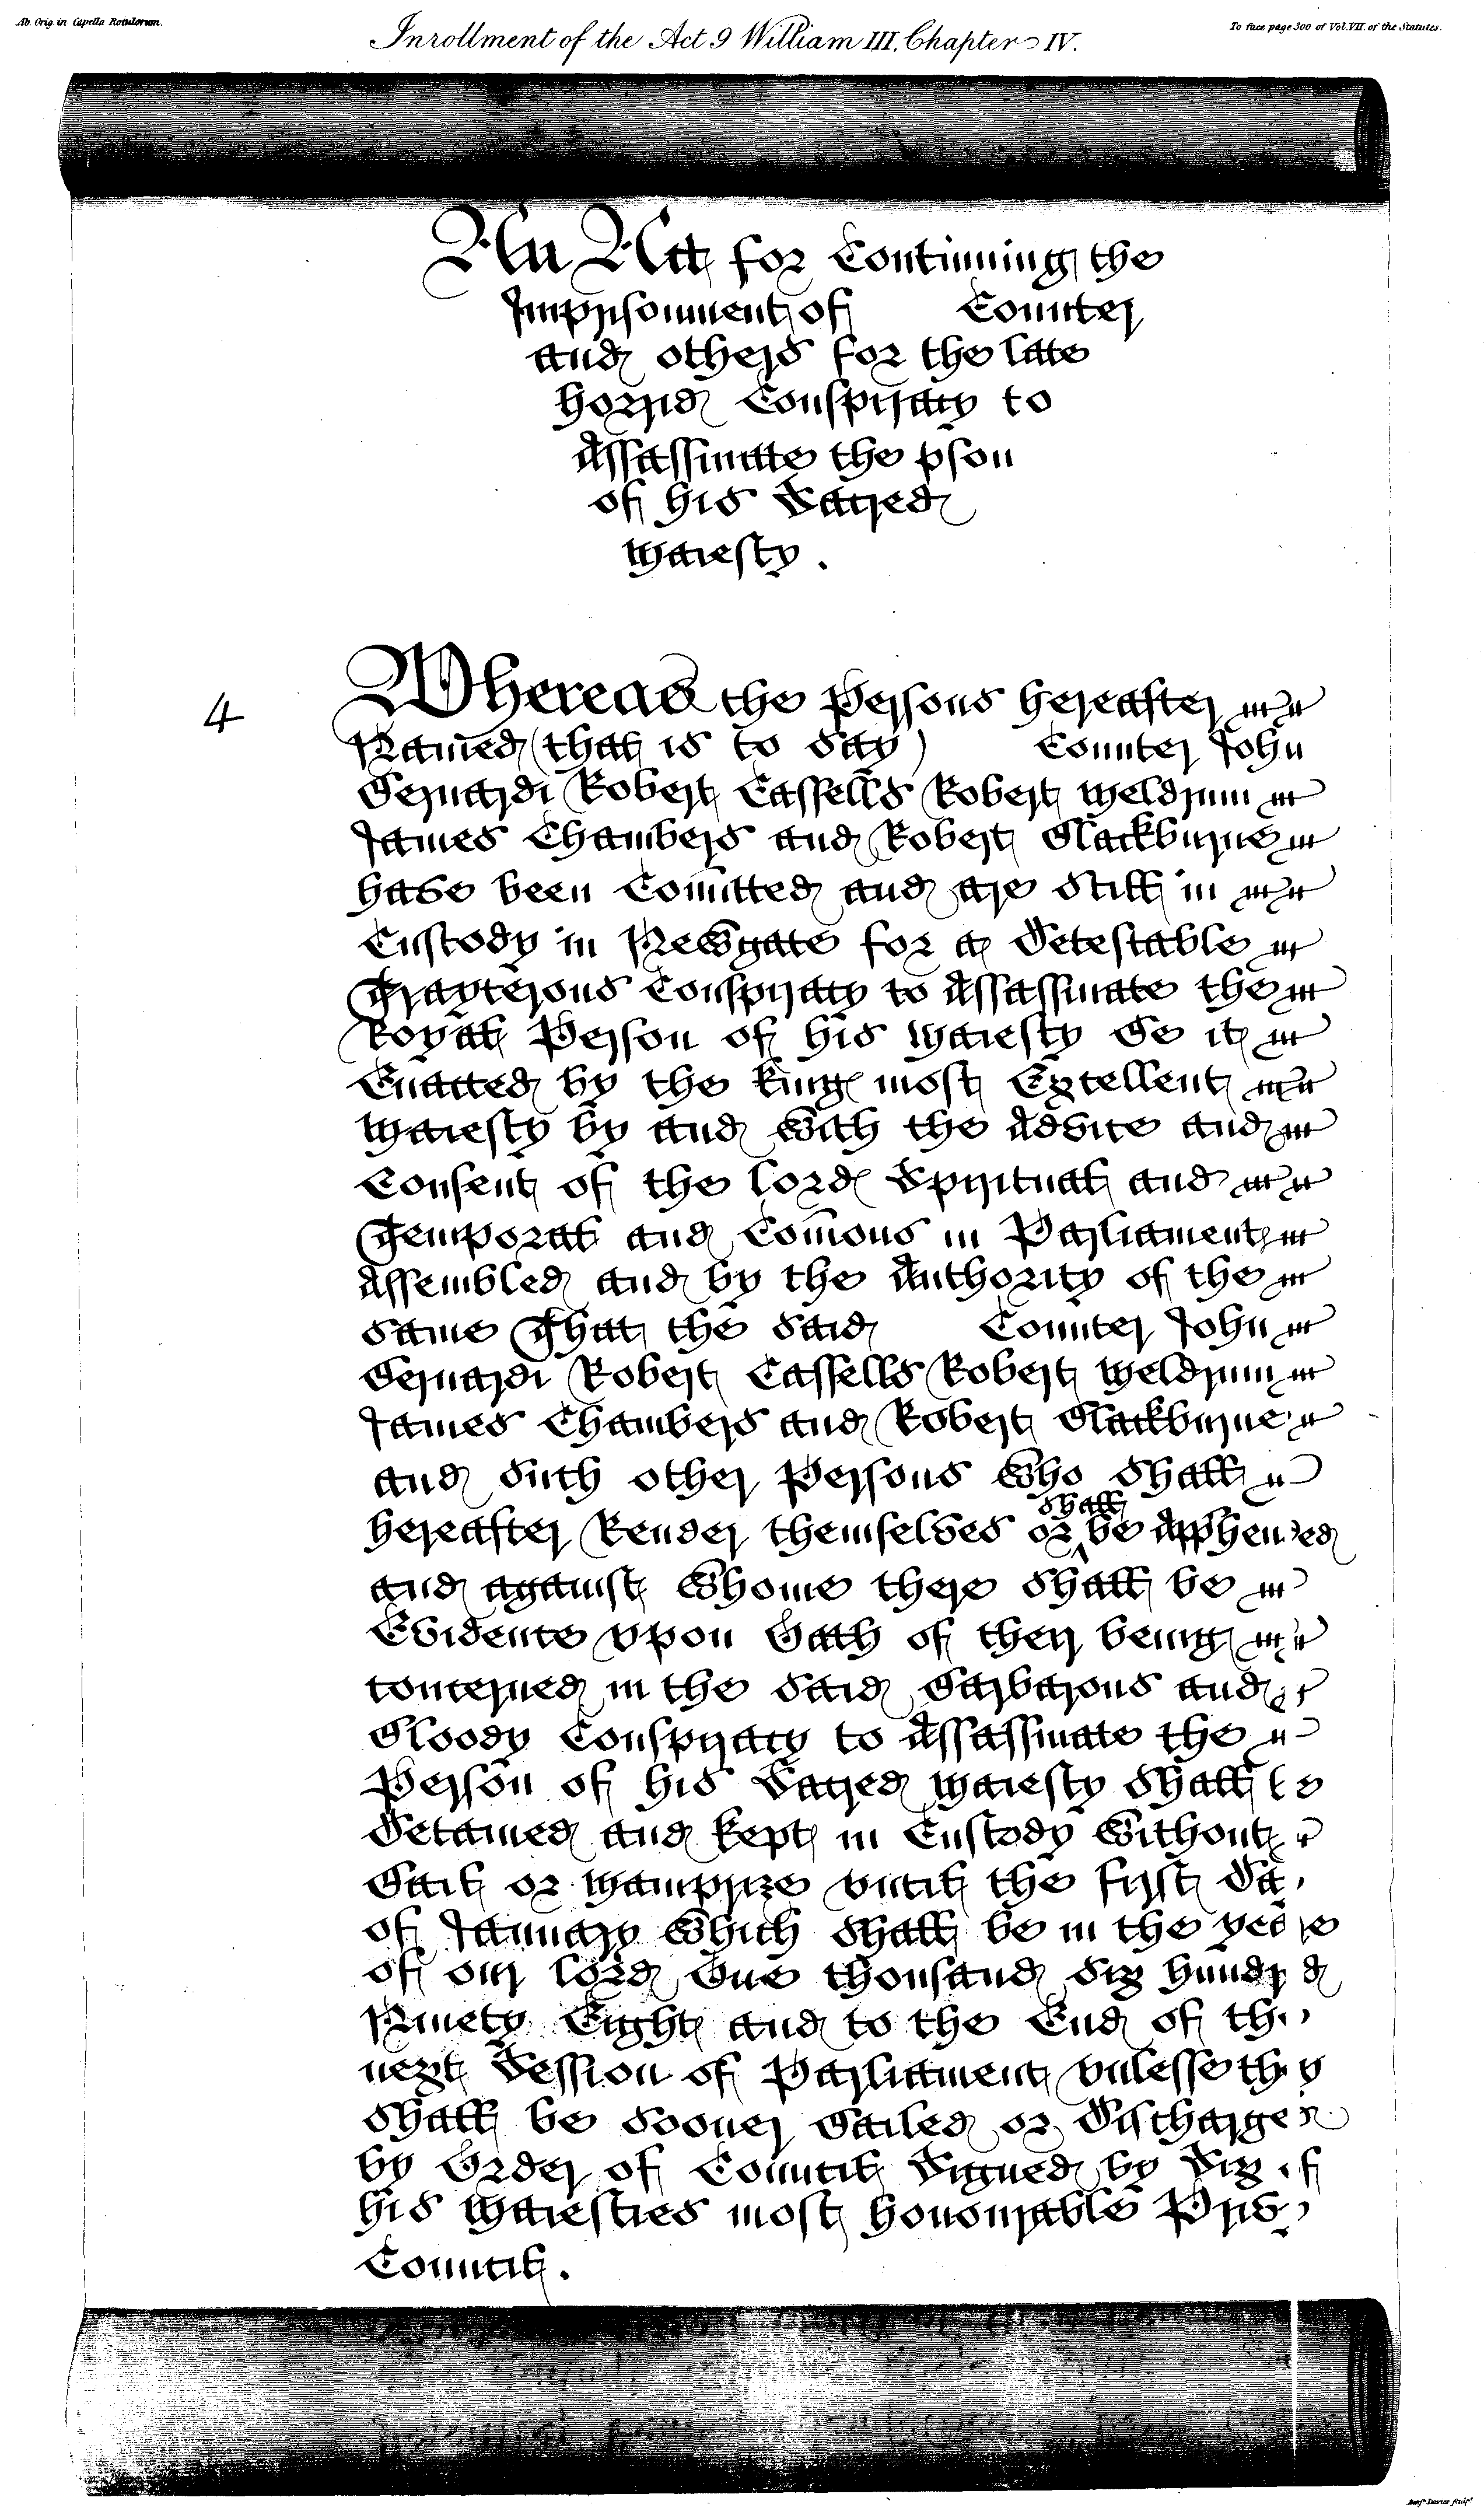 Ab. Orig. in Capella Rotulorum.
To face page 300 of Vol. VII. of the Statutes.
Inrollment of the Act 9 William III. Chapter IV.
An Act for Continuing the
Imprisonment of Counter
and others for the late
horrid Conspiracy to
Assassinate the pson
of his Sacred
Majesty.
4
Whereas the Persons hereafter
Named (that is to say) Counter John
Bernardi Robert Cassells Robert Meldrum
James Chambers and Robert Blackburne
have been Com̄itted and are still in
Custody in Newgate for a Detestable
Trayterous Conspiracy to Assassinate the
Royall Person of his Majesty Be it
Enacted by the Kings most Excellent
Majesty by and with the Advice and
Consent of the Lords Spirituall and
Temporall and Com̄ons in Parliament
Assembled and by the Authority of the
same That the said Counter John
Bernardi Robert Cassells Robert Meldrum
James Chambers and Robert Blackburne
and such other Persons who shall
shall
hereafter Render themselves or be Apphended
and against whome there shall be
Evidence upon Oath of their being
concerned in the said Barbarous and
Bloody Conspiracy to Assassinate the
Person of his Sacred Majesty shall be
Detained and kept in Custody without
Baill or Mainprize untill the first Day
of January which shall be in the yeare
of our Lord One thousand six hundred
Ninety Eight and to the End of the
next Session of Parliament unlesse they
shall be sooner Bailed or Discharged
by Order of Councill Signed by Six of
his Majesties most honourable Privy
Councill.